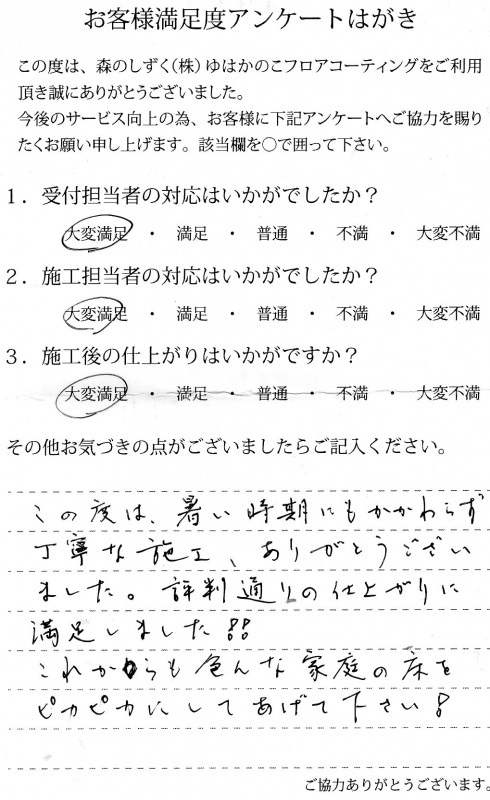 お客様満足度アンケートはがき
この度は、森のしずく(株)ゆはかのこフロアコーティングをご利用
頂き誠にありがとうございました。
今後のサービス向上の為、お客様に下記アンケートへご協力を賜り
たくお願い申し上げます。該当欄を○で囲って下さい。
1．受付担当者の対応はいかがでしたか？
大変満足 ・ 満足 ・ 普通 ・ 不満 ・ 大変不満
2．施工担当者の対応はいかがでしたか？
大変満足 ・ 満足 ・ 普通 ・ 不満 ・ 大変不満
3．施工後の仕上がりはいかがですか？
大変満足 ・ 満足 ・ 普通 ・ 不満 ・ 大変不満
その他お気づきの点がございましたらご記入ください。
この度は、暑い時期にもかかわらず
丁寧な施工、ありがとうござい
ました。評判通りの仕上がりに
満足しました!!
これからも色んな家庭の床を
ピカピカにしてあげて下さい!
ご協力ありがとうございます。